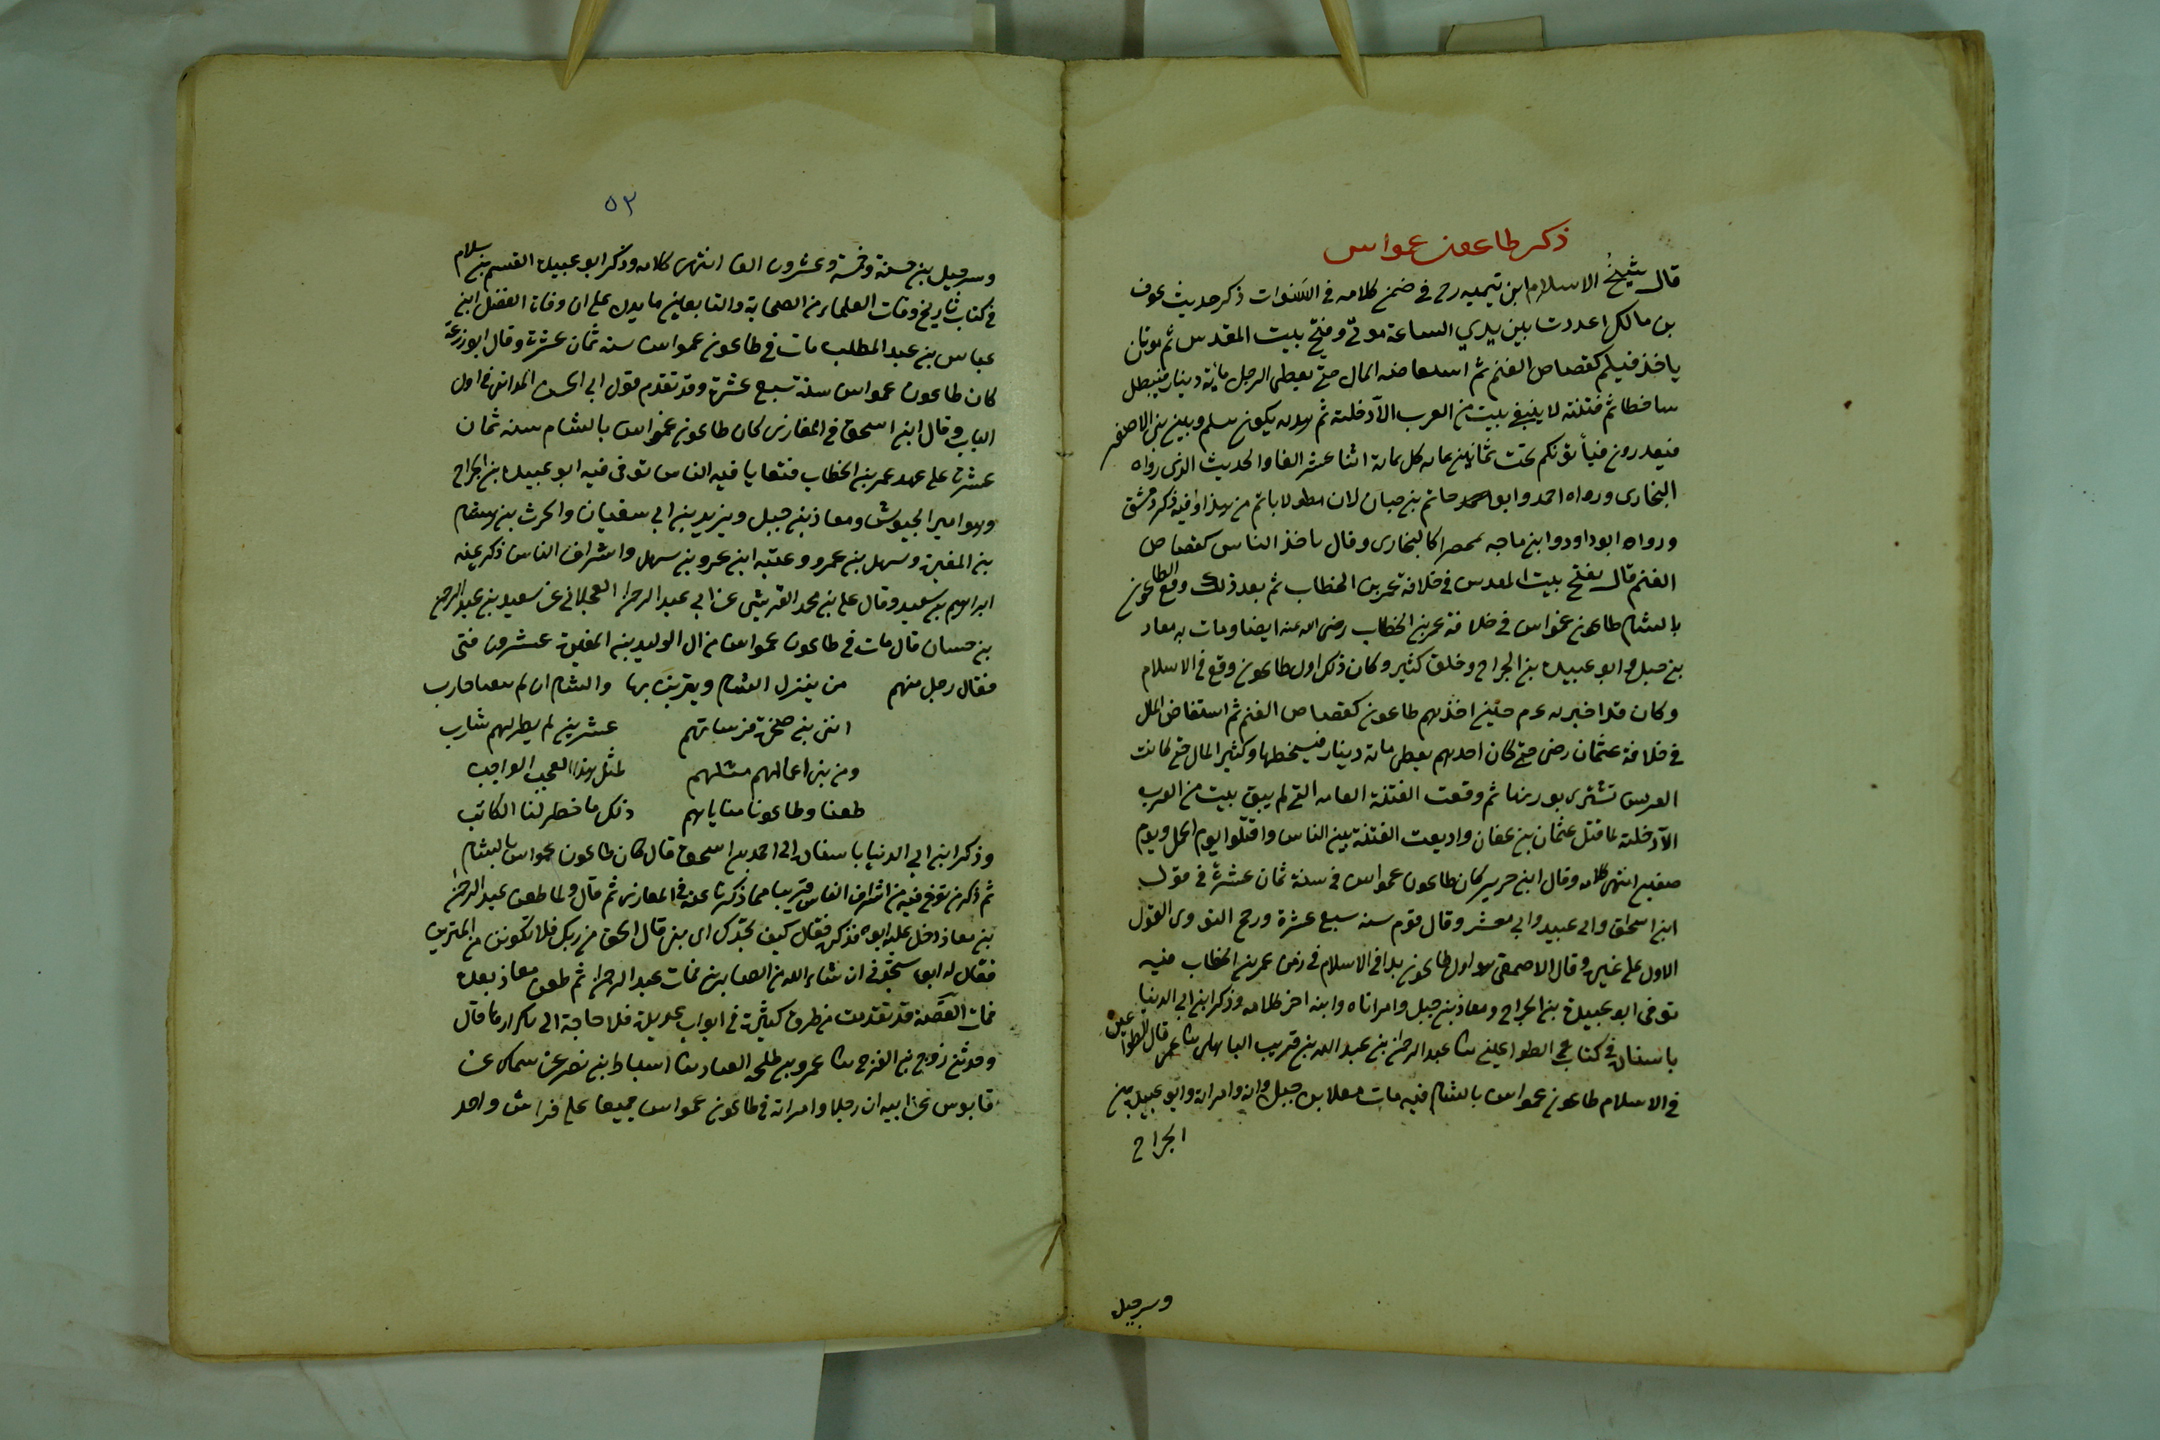 ذكر طاعون عمواس
قال شيخ الاسلام ابن تيميه رح في ضمن كلامه في السنوات ذكر حديث عوف
بن مالك اعددت بين يدي الساعة موتي وفتح بيت المقدس ثم موتان
ياخذ فيكم كقصاص الغنم ثم استفاضه المال حتى يعطى الرجل مائة دينار فيظل
ساخطا ثم فتنة لا يبقى بيت من العرب الا دخلته ثم هدنه يكون بينكم وبين بنى الاصفر
فيغدرون فياتونكم تحت ثمانين غايه كل غاية اثنا عشر الفا والحديث الذى رواه
البخارى ورواه احمد وابو حاتم بن حبان مطولا باتم من هذا وفيه ذكر دمشق
ورواه ابو داود وابن ماجه مختصرا كالبخارى وقال ياخذ الناس كقصاص
الغنم قال بفتح بيت المقدس في خلافة عمر بن الخطاب ثم بعد ذلك وقع الطاعون
بالشام طاعون عمواس في خلافة عمر بن الخطاب رضى الله عنه ايضا ومات به معاذ
بن جبل وابو عبيدة بن الجراح وخلق كثير وكان ذلك اول طاعون وقع في الاسلام
وكان قد اخبر به حين اخذهم طاعون كقصاص الغنم ثم استفاض المال
في خلافة عثمان رضى حتى كان احدهم يعطى مائة دينار فيسخطها وكثير المال حتى كانت
الفرس تشترى بوزنها ثم وقعت الفتنة العامه التي لم يبق بيت من العرب
الا دخلته لما قتل عثمان بن عفان الفتنة بين الناس واقتتلوا يوم الجمل ويوم
صفين انتهى كلامه وقال ابن جرير كان طاعون عمواس في سنة ثمان عشرة في قول
ابن اسحاق وابى عبيد وابي معشر وقال قوم سنة سبع عشرة ورجح النووى القول
الاول على غيره وقال الاصمعى هو اول طاعون بدا في الاسلام في زمن عمر بن الخطاب فيه
توفى ابو عبيدة بن الجراح ومعاذ بن جبل وامراتاه وابنه وذكر ابن ابى الدنيا
باسناده في كتاب الطواعين ثنا عبد الرحمن بن عبد الله بن قريب الباهلى ثنا عمى قال الطواعين
في الاسلام طاعون عمواس بالشام فيه مات معاذ بن جبل وابنه وامراته وابو عبيدة بن
الجراح
وسرحبيل
٥٢
وسرحبيل بن حسنة وخمسة وعشرون الفا انتهى كلامه وذكر ابو عبيدة القسم بن سلام
في كتاب تاريخ وفات العلماء من الصحابة والتابعين ما يدل على ان وفاة الفضل ابن
عباس بن عبد المطلب مات في طاعون عمواس سنه ثمان عشرة وقال ابو زرعة
كان طاعون عمواس سنة سبع عشرة وقد تقدم قول ابى الحسن المدائنى في اول
الباب وقال ابن اسحق في المغازى كان طاعون عمواس بالشام سنه ثمان
عشرة على عهد عمر بن الخطاب فتفانا فيه الناس توفى فيه ابو عبيدة بن الجراح
وهو امير الجيوش ومعاذ بن جبل ويزيد بن ابي سفيان والحرث بن هشام
بن المغيرة وسهل بن عمرو وعتبه ابن عمرو بن سهل واشراف الناس ذكر عنه
ابراهيم بن سعيد وقال علي بن محمد القريشى عن ابي عبد الرحمن العجلانى عن سعيد بن عبد الرحمن
بن حسان قال مات في طاعون عمواس من ال الوليد بن المغيرة عشرون فتى
فقال رجل منهم من ينزل الشام ويعرس بها والشام ان لم كارب
افنى بنى فرسانهم عشرين لم يطر لهم شارب
ومن بنى اعمامهم مثلهم لمثل هذا العجب العاجب
طعنا وطاعونا مناياهم ذلك ما خط لنا الكاتب
وذكر ابن ابي الدنيا باسناده الى احمد بن اسحق قال كان طاعون عمواس بالشام
ثم ذكر من توفي فيه من اشراف الناس قريبا مما ذكرنا عنه في المغازى ثم قال ولما طعن عبد الرحمن
بن معاذ دخل عليه ابوه فقال كيف تجدك اى بنى قال الحق من ربك فلا تكونن من الممترين
فقال له ابوه ستجدنى ان شاء الله من الصابرين فمات عبد الرحمن ثم طعن معاذ بعده
فمات القصة قد تقدمت من طرق كثيرة في ابواب عديدة فلا حاجة الى تكرارها قال
وحدثنى روح بن الفرج ثنا عمرو بن طلحه القناد ثنا اسباط بن نصر عن سماك عن
قابوس عن ابيه ان رجلا وامراته في طاعون عمواس جميعا على فراش واحد